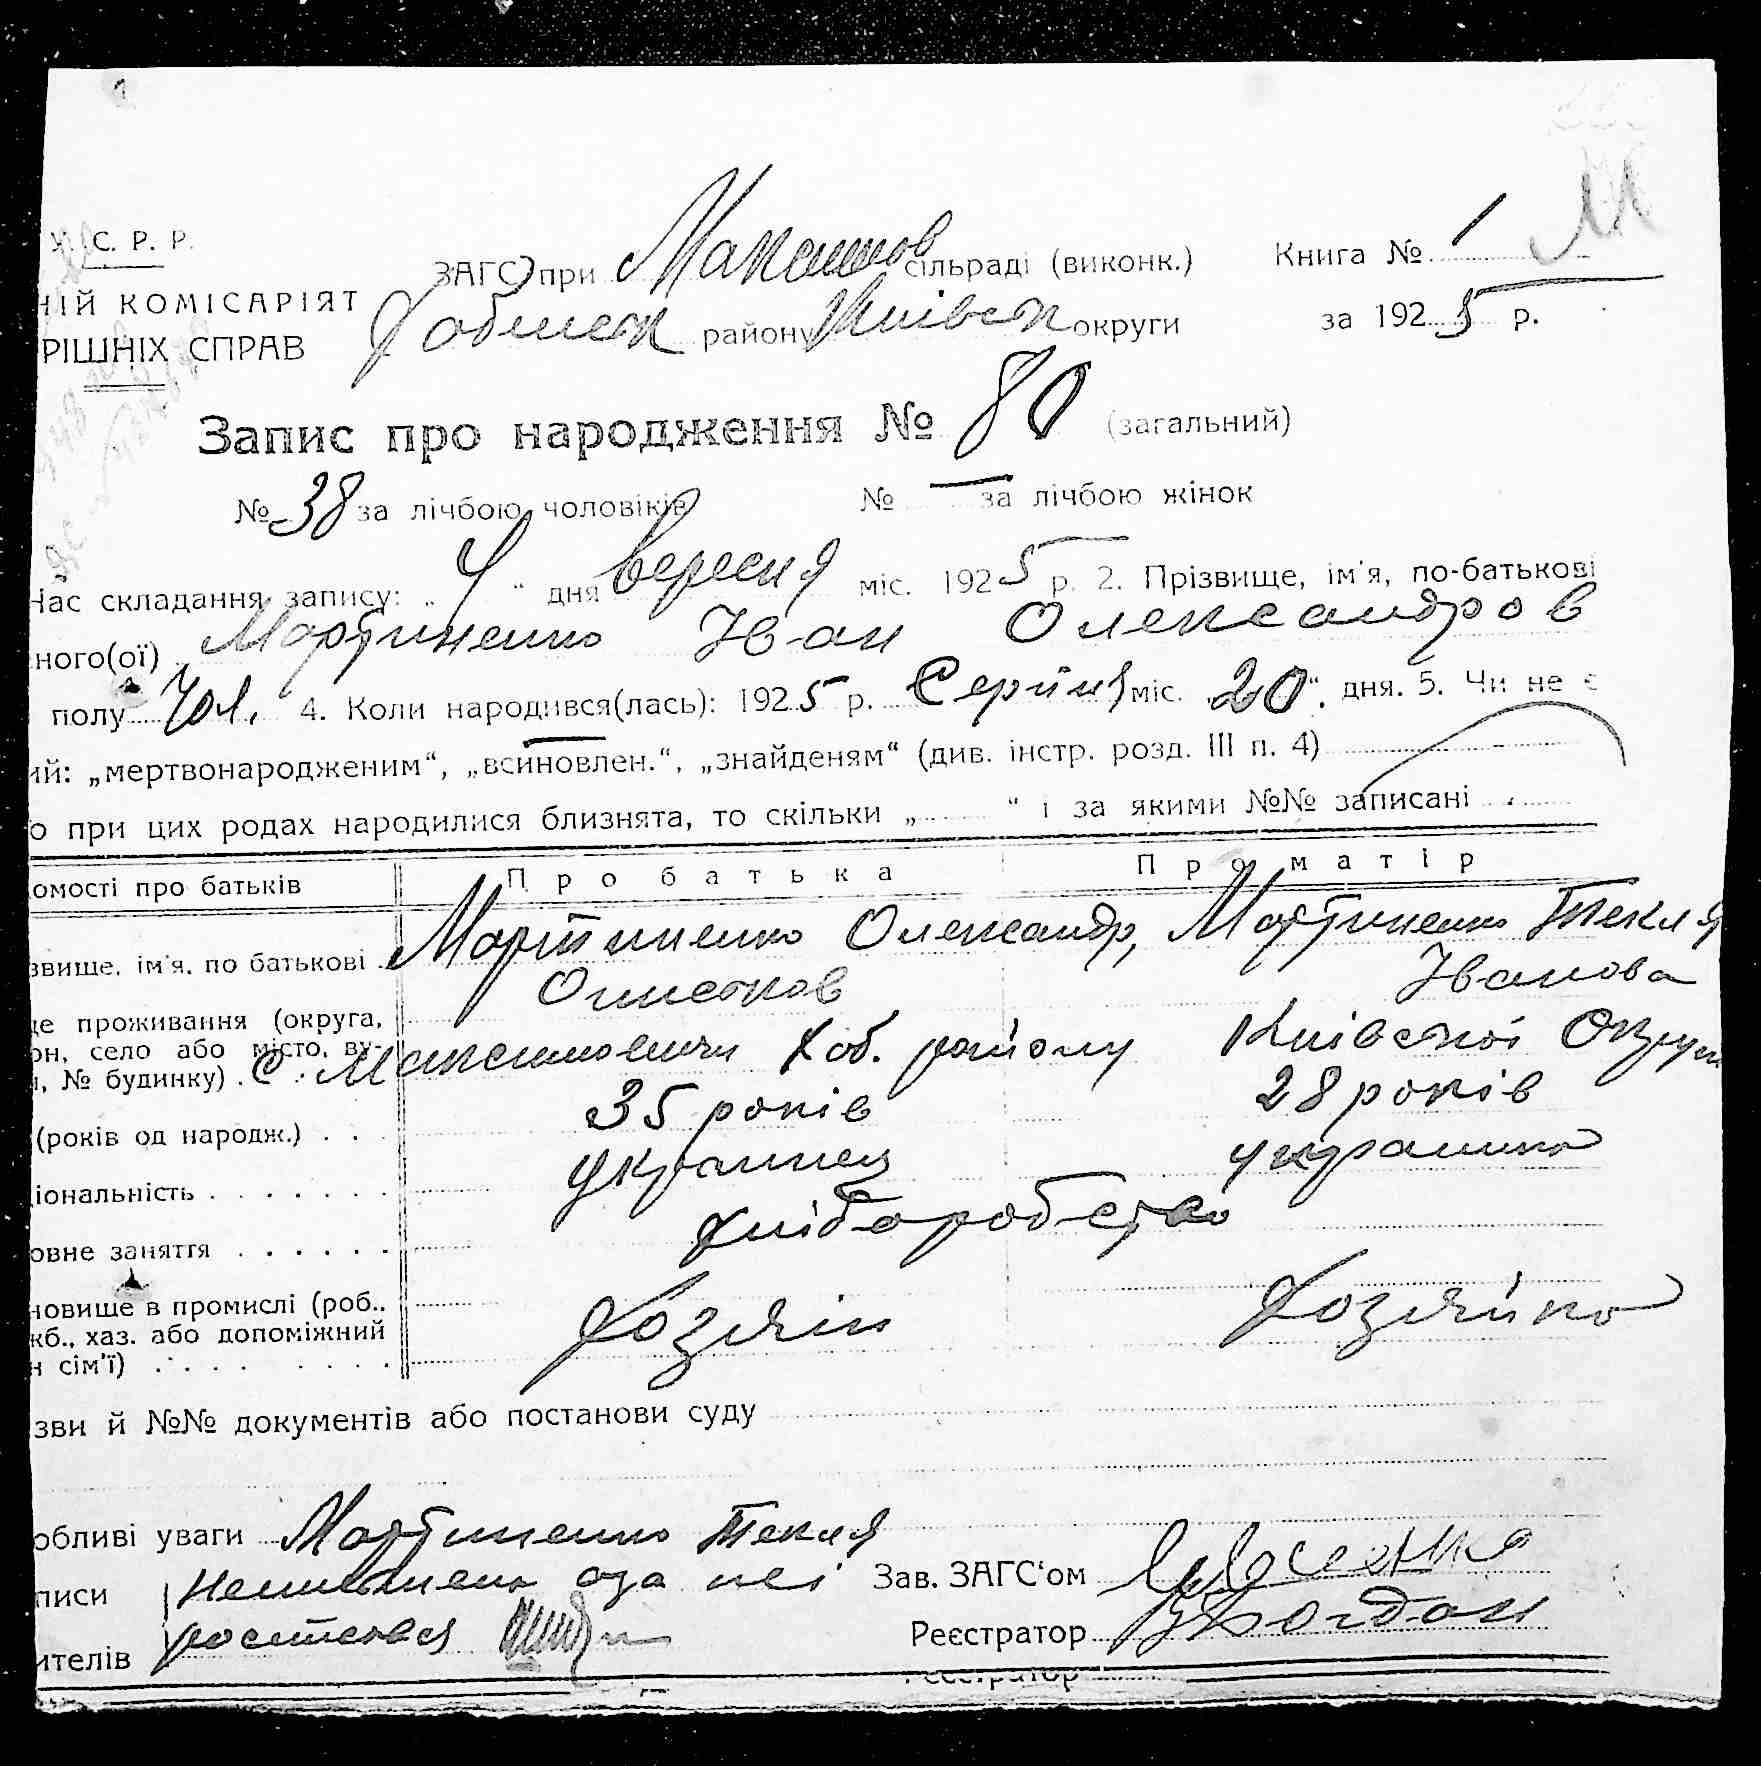 У. С. Р. Р.
ЗАГС при Максимов сільраді (виконк.) Книга № 1 М
НІЙ КОМІСАРІЯТ
Хабенск району Київск округи за 1925 р.
РІШНІХ СПРАВ
Запис про народження № 80 (загальний)
№ 38 за лічбою чоловіків № — за лічбою жінок
Час складання запису: „ 4 “ дня вересня міс. 1925 р. 2. Прізвище, ім'я, по-батькові
ного(ої) Мартиненко Іван Олександров
полу чол. 4. Коли народився(лась): 1925 р. Серпня міс. 20“. дня. 5. Чи не є
ий: „мертвонародженим“, „всиновлен.“, „знайденям“ (див. інстр. розд. III п. 4)
о при цих родах народилися близнята, то скільки „ “ і за якими №№ записані
омості про батьків Про батька Про матір
звище, ім'я, по батькові Мартиненко Олександр, Мартиненко Текля
Іванова
це проживання (округа,
он, село або місто, ву-
и, № будинку) С. Максимовичи Хоб. району Київської Округи
(років од народж.) 35 років 28 років
іональність українец українка
овне заняття хліборобство
новище в промислі (роб.,
кб., хаз. або допоміжний Хозяін Хозяйка
н сім'ї)
зви й №№ документів або постанови суду
обливі уваги Мартиненко Текля
писи неписьмена за неі Зав. ЗАГС'ом
ителів ростсовся Реєстратор Богдан